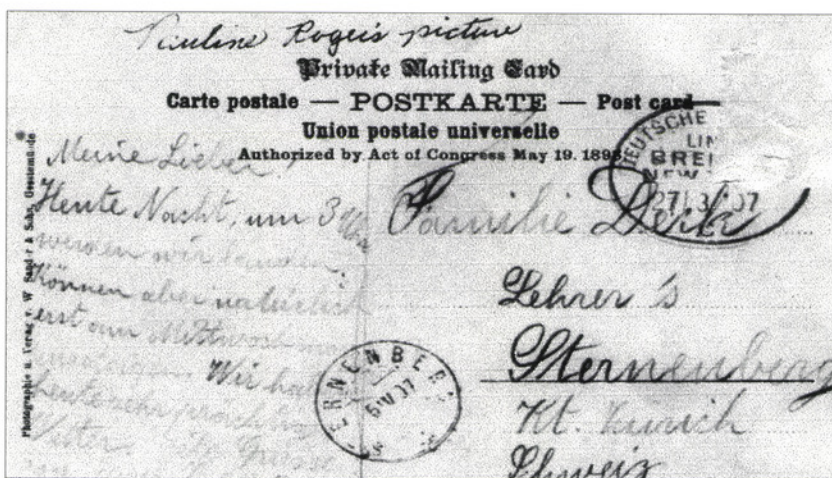 Pauline Roger's picture
Private Mailing Card
Carte postale — POSTKARTE — Post card
Union postale universelle
Authorized by Act of Congress May 19. 1898
DEUTSCHE
LIN
BRE
NEW
27 3 07
Photographie u. Verlag v. W. Sander & Sohn, Geestemünde
Meine Lieben!
Heute Nacht, um 3 Uhr
werden wir landen.
Können aber natürlich
erst am Mittwoch
Wir
heute sehr prächtig
Wetter. Grüsse
Familie
Lehrer's
Sternenberg
Kt. Zürich
Schweiz
STERNENBERG
IV 07